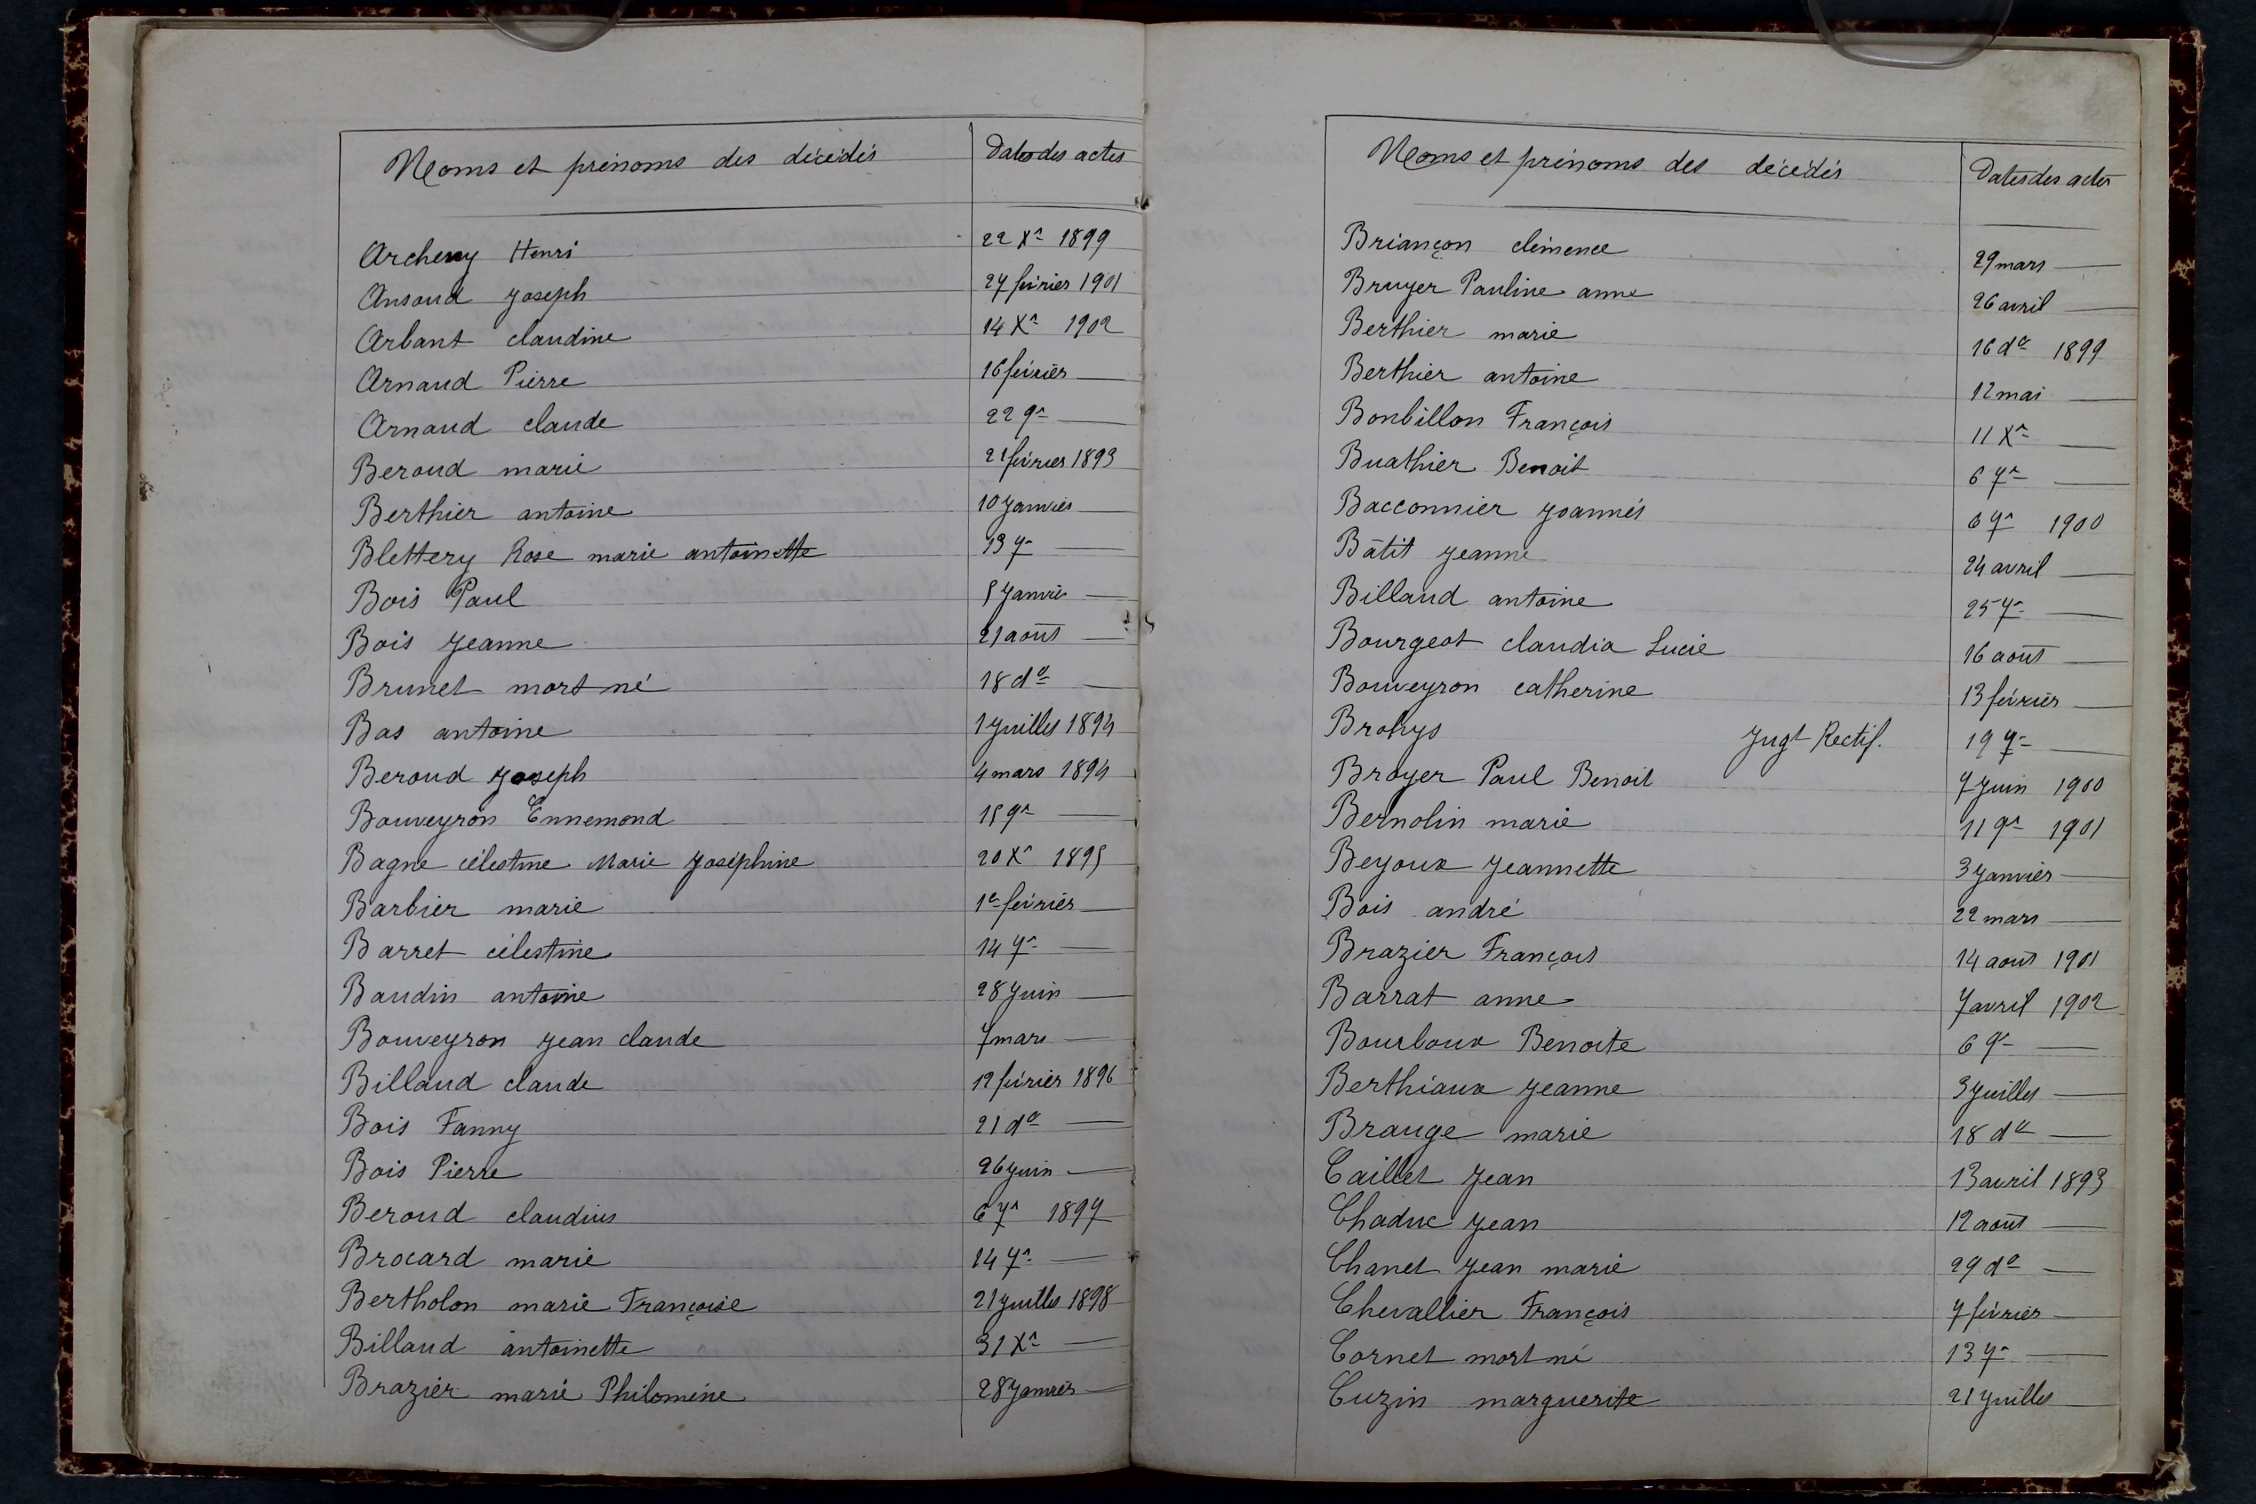 Noms et prénoms des décédés Dates des actes
Archeny Henri 22 Xre 1899
Ansoud Joseph 27 février 1901
Arbant claudine 14 Xre 1902
Arnaud Pierre 16 février —
Arnaud claude 22 9re —
Beroud marie 21 février 1893
Berthier antoine 10 Janvier —
Blettery Rose marie antoinette 13 7re —
Bois Paul 5 Janvier —
Bois Jeanne 21 août —
Brunet mort né 18 do —
Bas antoine 1 Juillet 1894
Beroud Joseph 4 mars 1894
Bouveyron Ennemond 15 9re —
Bagne célestine Marie Joséphine 20 Xre 1895
Barbier marie 1er février —
Barret célestine 14 7re —
Baudin antoine 28 Juin —
Bouveyron Jean claude 7 mars —
Billaud claude 12 février 1896
Bois Fanny 21 do —
Bois Pierre 26 Juin —
Beroud claudius 6 7re 1897
Brocard marie 14 7re —
Bertholon marie Françoise 21 Juillet 1898
Billaud antoinette 31 Xre —
Brazier marie Philomène 28 Janvier —
Noms et prénoms des décédés Dates des actes
Briançon clémence 29 mars —
Bruyer Pauline anne 26 avril —
Berthier marie 16 do 1899
Berthier antoine 12 mai —
Bonbillon François 11 Xre —
Buathier Benoit 6 7re —
Bacconnier Joannès 6 9re 1900
Bâtit Jeanne 24 avril —
Billaud antoine 25 7re —
Bourgeot claudia Lucie 16 août —
Bouveyron catherine 13 février —
Brohys Jugt Rectif. 19 7re —
Broyer Paul Benoit 7 Juin 1900
Bernolin marie 11 9re 1901
Beyoux Jeannette 3 Janvier —
Bois andré 22 mars —
Brazier François 14 août 1901
Barrat anne 7 avril 1902
Bourboux Benoite 6 9re —
Berthiaux Jeanne 3 Juillet —
Brauge marie 18 do —
Caillet Jean 13 avril 1893
Chaduc Jean 12 août —
Chanet Jean marie 29 do —
Chevallier François 7 février —
Cornet mort né 13 7re —
Cuzin marguerite 21 Juillet